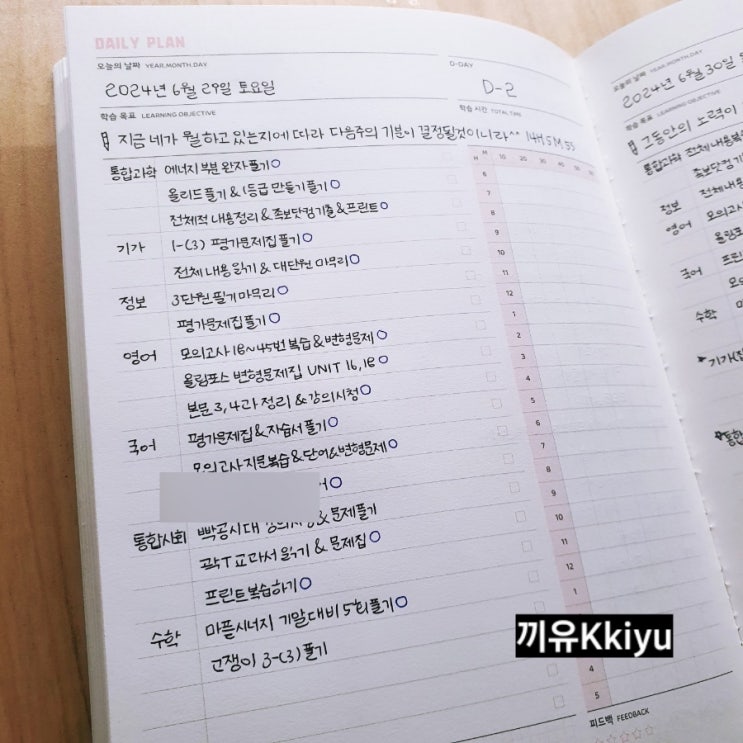 DAILY PLAN
오늘의 날짜 YEAR.MONTH.DAY
D-DAY
2024년 6월 29일 토요일
D-2
학습 목표 LEARNING OBJECTIVE
학습 시간 TOTAL TIME
지금 네가 뭘 하고 있는지에 따라 다음주의 기분이 결정될것이니라^^
14H 5M 5S
통합과학 에너지 부분 완자 풀기
올리드 풀기 & 1등급 만들기 풀기
전체적 내용정리 & 족보닷컴 기출 & 프린트
기가 1-(3) 평가문제집 풀기
전체 내용 읽기 & 대단원 마무리
정보 3단원 필기 마무리
평가문제집 풀기
영어 모의고사 18~45번 복습 & 변형문제
올림포스 변형문제집 UNIT 16, 18
본문 3, 4과 정리 & 강의시청
국어 평가문제집 & 자습서 풀기
모의고사 지문복습 & 단어 & 변형문제
어
통합사회 빡공시대 & 문제풀기
곽T 교과서 읽기 & 문제집
프린트 복습하기
수학 마플시너지 기말대비 5회 풀기
고쟁이 3-(3) 풀기
H M 10 20 30 40 50
6
7
8
9
10
11
12
1
2
3
4
5
6
7
8
9
10
11
12
1
4
5
피드백 FEEDBACK
오늘의 날짜 YEAR.MONTH.DAY
2024년 6월 30일
학습 목표 LEARNING OBJECTIVE
그동안의 노력이
통합과학 전체 내용복
족보닷컴
정보 전체내
영어 모의고
올림포
국어 프린
모의
수학
기가
통합
끼유Kkiyu